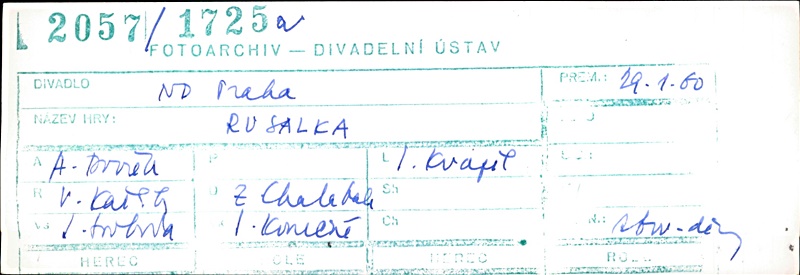 2057/1725a
FOTOARCHIV — DIVADELNÍ ÚSTAV
DIVADLO ND Praha PREM.: 29.1.60
NÁZEV HRY: RUSALKA
A A. Dvořák P L J. Kvapil
R V. Kašlík D Z Chalabala Sh
Vs J. Svoboda K J. Konečná Ch N.:
HEREC OLE HEREC ROLE